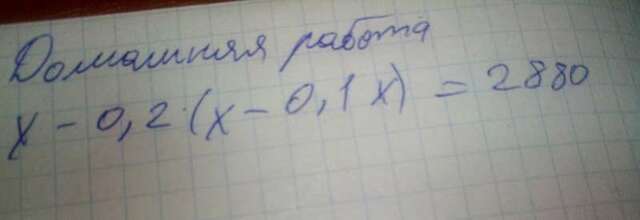 Домашняя работа
x - 0,2·(x - 0,1x) = 2880